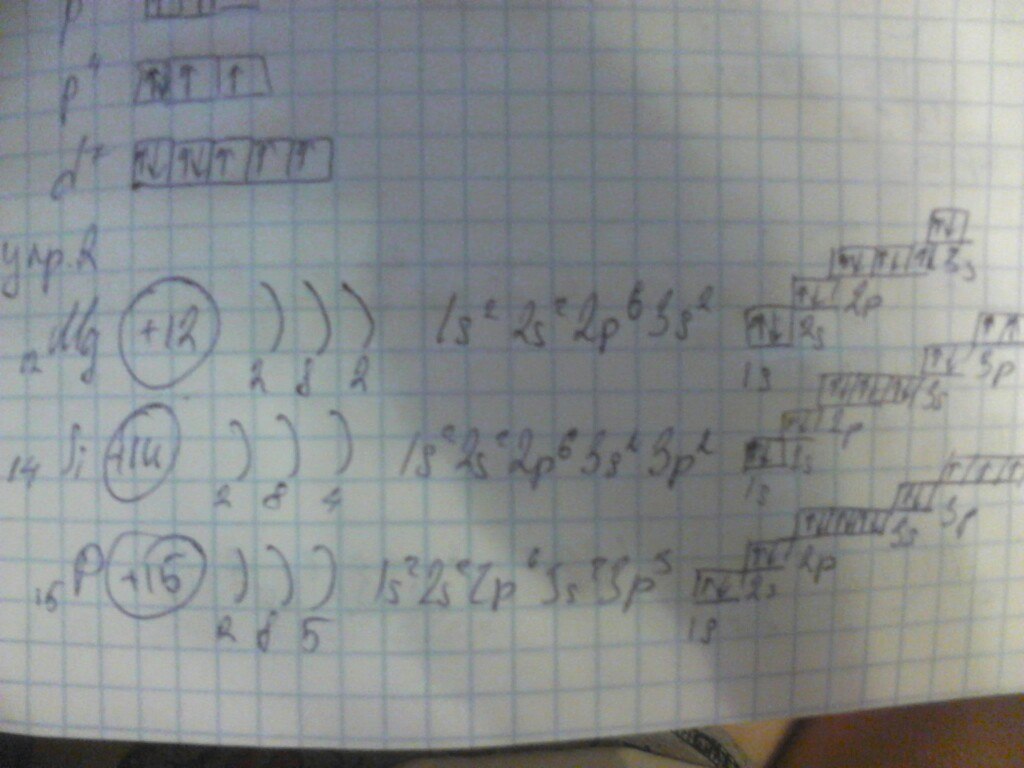 p
p⁴ ↑↓ ↑ ↑
d⁷ ↑↓ ↑↓ ↑ ↑ ↑
упр. 2
12 Mg +12 ) ) ) 1s² 2s² 2p⁶ 3s² ↑↓ ↑↓ ↑↓ ↑↓ ↑↓ ↑↓
2 8 2 1s 2s 2p 3s
14 Si +14 ) ) ) 1s² 2s² 2p⁶ 3s² 3p² ↑↓ ↑↓ ↑↓ ↑↓ ↑↓ ↑↓ ↑ ↑
2 8 4 1s 2s 2p 3s 3p
15 P +15 ) ) ) 1s² 2s² 2p⁶ 3s² 3p³ ↑↓ ↑↓ ↑↓ ↑↓ ↑↓ ↑↓ ↑ ↑ ↑
2 8 5 1s 2s 2p 3s 3p